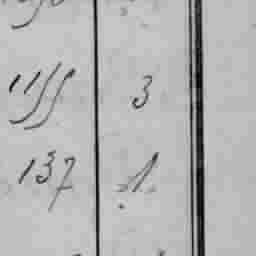 1155 3
137 1